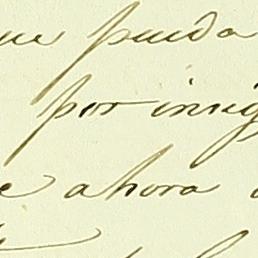 ue pueda
por insig
e ahora